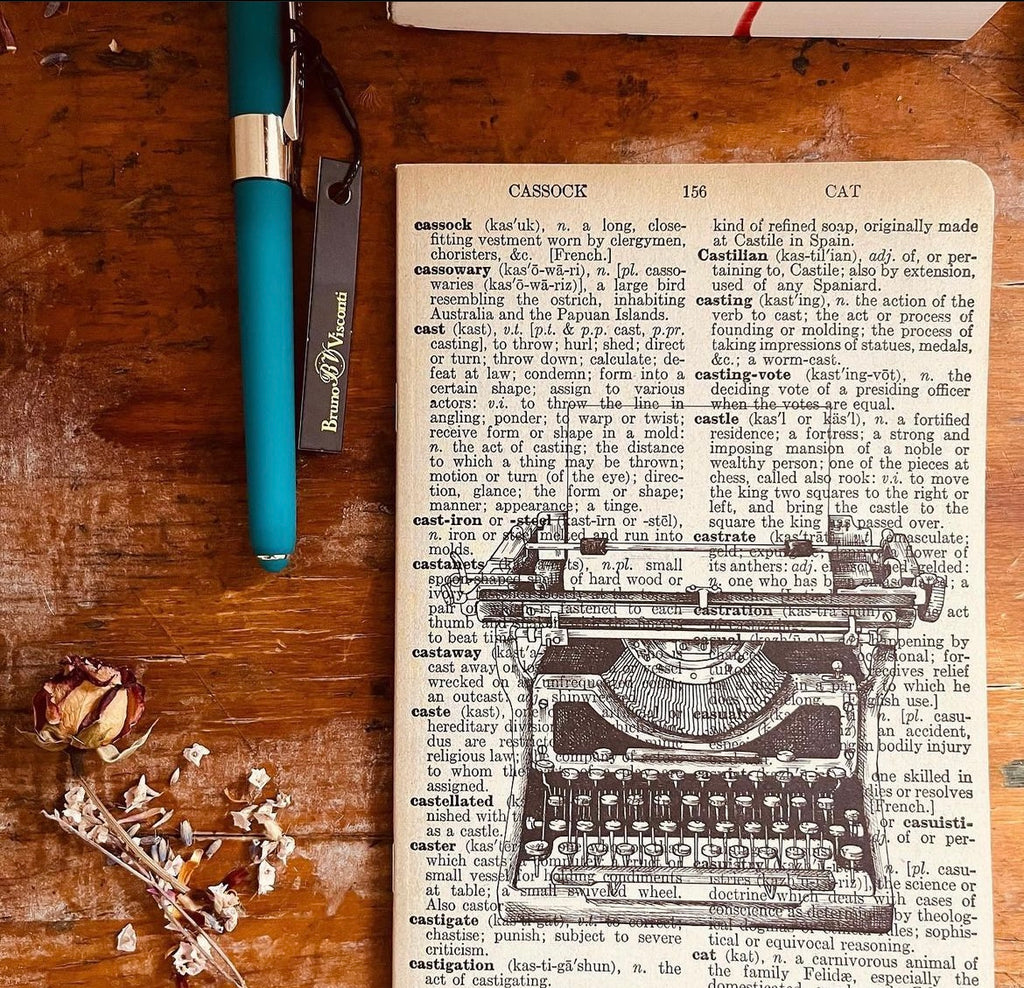 Bruno BV Visconti
CASSOCK 156 CAT
cassock (kas′uk), n. a long, close-
fitting vestment worn by clergymen,
choristers, &c. [French.]
cassowary (kas′ō-wā-ri), n. [pl. casso-
waries (kas′ō-wā-riz)], a large bird
resembling the ostrich, inhabiting
Australia and the Papuan Islands.
cast (kast), v.t. [p.t. & p.p. cast, p.pr.
casting], to throw; hurl; shed; direct
or turn; throw down; calculate; de-
feat at law; condemn; form into a
certain shape; assign to various
actors: v.i. to throw the line in
angling; ponder; to warp or twist;
receive form or shape in a mold:
n. the act of casting; the distance
to which a thing may be thrown;
motion or turn (of the eye); direc-
tion, glance; the form or shape;
manner; appearance; a tinge.
cast-iron or -steel (kast-īrn or -stēl),
n. iron or steel melted and run into
molds.
castanets n.pl. small
spoon-shaped of hard wood or
pair of which is fastened to each
thumb and
to beat time
castaway
cast away or
wrecked on an unfrequented
an outcast, adj. shipwrecked
caste (kast), one of
hereditary divisions
dus are restricted
religious law;
to whom the
assigned.
castellated
nished with
as a castle.
caster (kas′tẽr
which casts;
small vessel for holding condiments
at table; a small swiveled wheel.
Also castor
castigate (kas′ti-gāt), v.t. to correct;
chastise; punish; subject to severe
criticism.
castigation (kas-ti-gā′shun), n. the
act of castigating.
kind of refined soap, originally made
at Castile in Spain.
Castilian (kas-til′ian), adj. of, or per-
taining to, Castile; also by extension,
used of any Spaniard.
casting (kast′ing), n. the action of the
verb to cast; the act or process of
founding or molding; the process of
taking impressions of statues, medals,
&c.; a worm-cast.
casting-vote (kast′ing-vōt), n. the
deciding vote of a presiding officer
when the votes are equal.
castle (kas′l or käs′l), n. a fortified
residence; a fortress; a strong and
imposing mansion of a noble or
wealthy person; one of the pieces at
chess, called also rook: v.i. to move
the king two squares to the right or
left, and bring the castle to the
square the king has passed over.
castrate (kas′trāt) emasculate;
geld; power of
its anthers: adj. gelded:
n. one who has been a
castration (kas-trā′shun) act
casual happening by
for-
receives relief
in a parish to which he
long. [English use.]
n. [pl. casu-
an accident,
bodily injury
one skilled in
or resolves
[French.]
or casuisti-
adj. of or per-
casuistry n. [pl. casu-
istries the science or
doctrine which deals with cases of
conscience as determined by theolog-
ical dogmas or sophis-
tical or equivocal reasoning.
cat (kat), n. a carnivorous animal of
the family Felidæ, especially the
domesticated